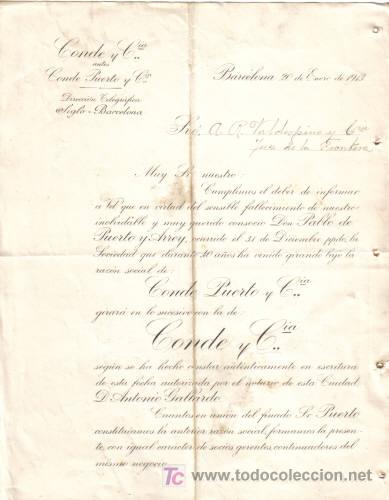 Conde y Cía
antes
Conde Puerto y Cía
Dirección Telegráfica
Siglo-Barcelona
Barcelona 20 de Enero de 1913
Sres. A. R. Valdespino y Cía
Jerez de la Frontera
Muy Sr nuestro:
Cumplimos el deber de informar
á Vd que en virtud del sensible fallecimiento de nuestro
inolvidable y muy querido consocio Don Pablo de
Puerto y Arroy, ocurrido el 31 de Diciembre ppdo, la
Sociedad que durante 30 años ha venido girando bajo la
razón social de:
Conde Puerto y Cía
girará en lo sucesivo con la de:
Conde y Cía
según se ha hecho constar auténticamente en escritura
de esta fecha autorizada por el notario de esta Ciudad
D. Antonio Gallardo.
Cuantos en unión del finado Sr Puerto
constituíamos la anterior razón social, formamos la presen-
te, con igual carácter de socios gerentes, continuadores del
mismo negocio.
TC
www.todocoleccion.net